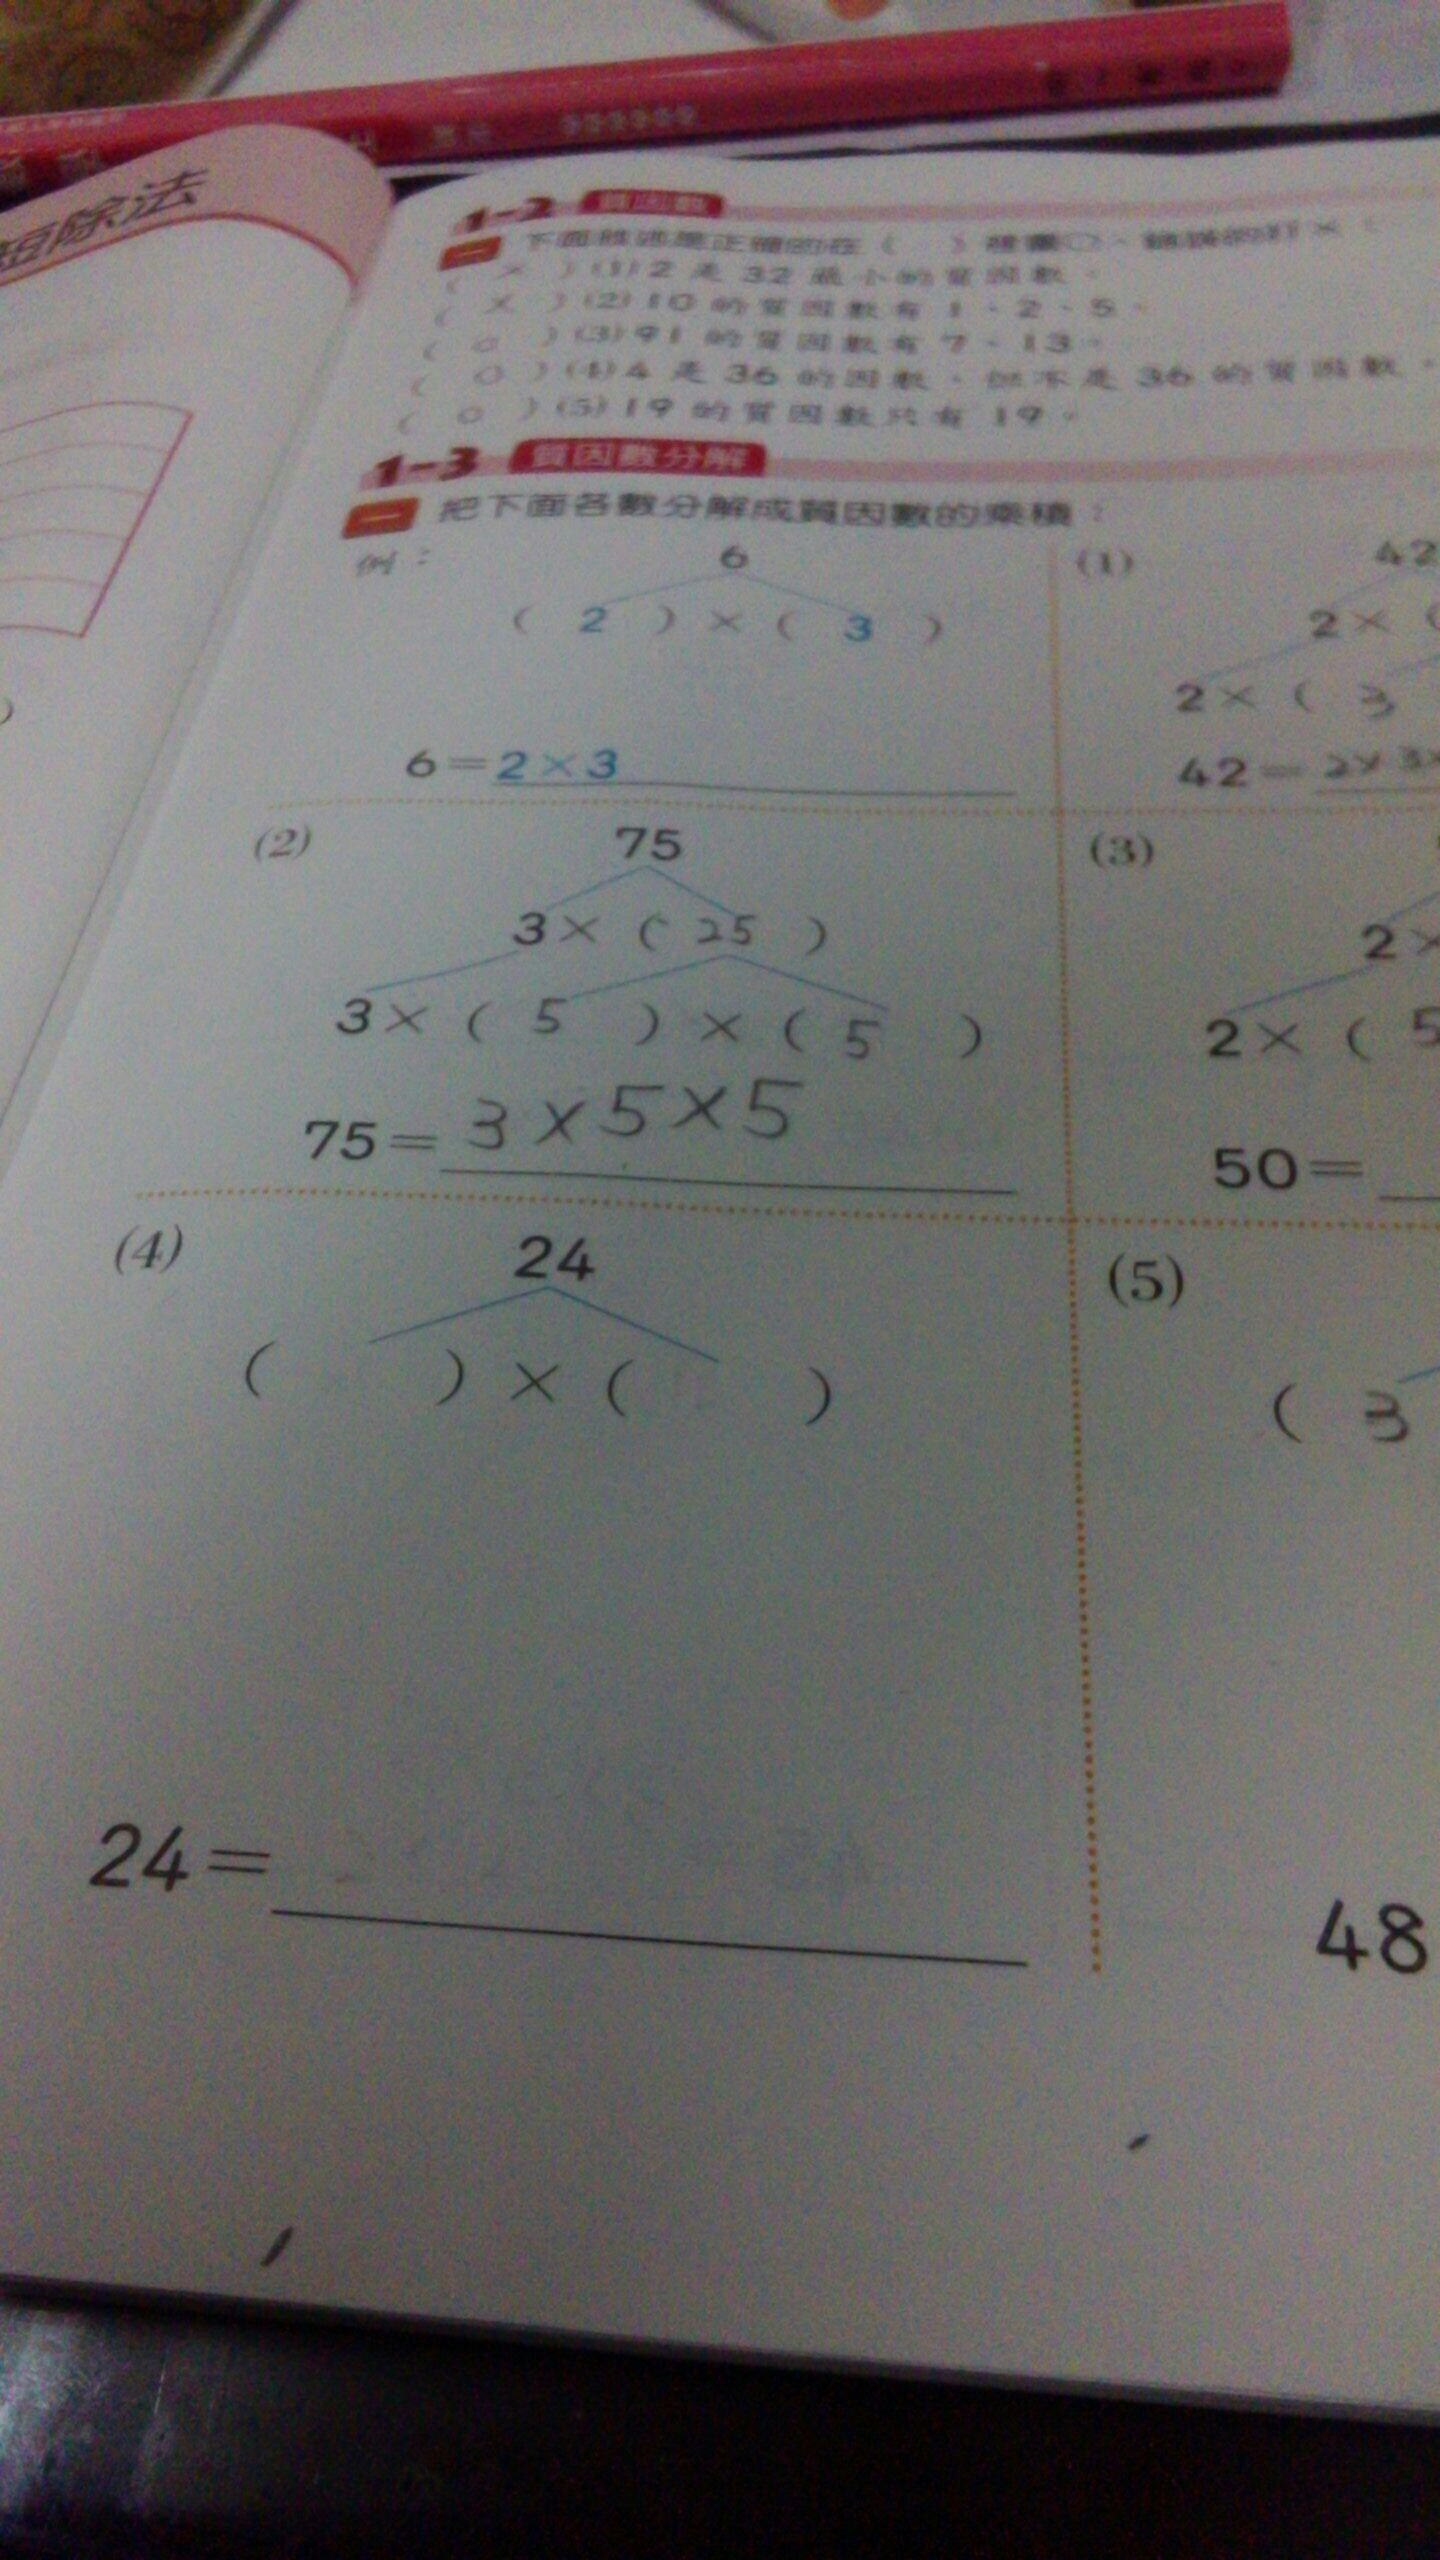 短除法
1-2 質因數
一 下面敘述是正確的在( )裡畫○，錯誤的打×：
( × )(1)2是32最小的質因數。
( × )(2)10的質因數有1、2、5。
( ○ )(3)91的質因數有7、13。
( ○ )(4)4是36的因數，但不是36的質因數。
( ○ )(5)19的質因數只有19。
1-3 質因數分解
一 把下面各數分解成質因數的乘積：
例：
6
( 2 ) × ( 3 )
6=2×3
(1)
42
2× (
2× ( 3
42=2×3×
(2)
75
3× ( 25 )
3× ( 5 ) × ( 5 )
75=3×5×5
(3)
2×
2× ( 5
50=
(4)
24
( ) × ( )
24=
(5)
( 3
48